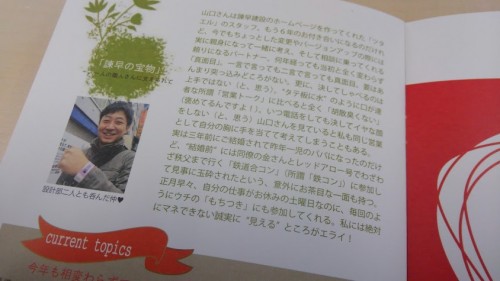 「諫早の宝物」
設計部二人とも呑んだ仲♥
山口さんは諫早建設のホームページを作ってくれた
エル”のスタッフ。もう6年のお付き合いになるのだけれ
ど、今でもちょっとした変更やバージョンアップの際には
実に親身になって一緒に考え、そして相談に乗ってくれる
頼りになるパートナー。何年経っても当初と全く変わらず
「真面目」。一言で言っても二言で言っても真面目。要はあ
んまり突っ込みどころがない。更に、決してしゃべるのは
上手ではない（と、思う）。“タテ板に水”のように口が達
者な所謂「営業トーク」に比べると全く「胡散臭くない」
（褒めてるんですよ！）。いつ電話をしても決してイヤな顔
をしない（と、思う）山口さんを見ていると私も同じ営業
として自分の胸に手を当てて考えてしまうこともある。
実は三年前にご結婚されて昨年一児のパパになったのだけ
ど、“結婚前”には同僚の金さんとレッドアロー号でわざわ
ざ秩父まで行く「鉄道合コン」（所謂「鉄コン」）に参加し
て見事に玉砕されたという、意外にお茶目な一面も持つ。
正月早々、自分の仕事がお休みの土曜日なのに、毎回のよ
うにウチの「もちつき」にも参加してくれる。私には絶対
にマネできない誠実に“見える”ところがエライ！
current topics
今年も相変わらず